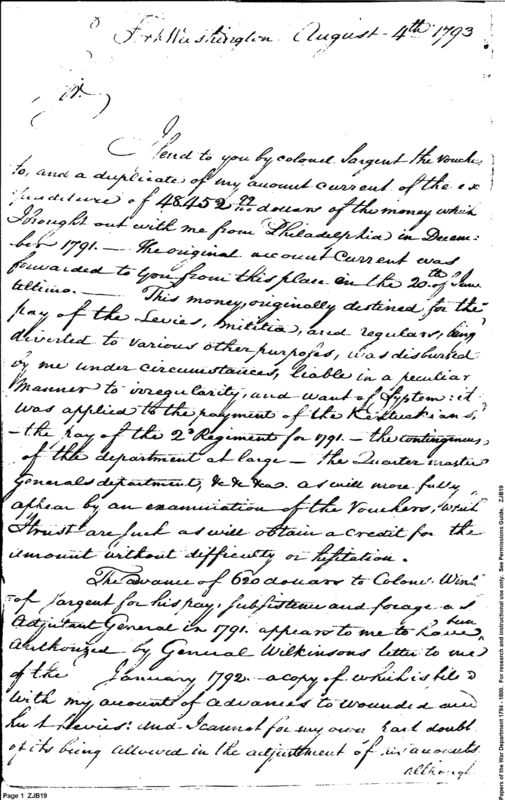 Fort Washington August 4th 1793
Sir.
I send to you by colonel Sargent the vouche
to, and a duplicate of my acount current of the ex
penditure of 48452 92/100 dollars of the money which
I brought out with me from Philadelphia in Decem-
ber 1791. — The original account current was
forwarded to you from this place on the 20th of June
ultimo. — This money, originally destined for the
pay of the Levies, militia, and regulars, being
diverted to various other purposes, was disbursed
by me under circumstances, liable in a peculiar
manner to irregularity, and want of System: it
was applied to the payment of the Kentuckians,
— the pay of the 2d Regiment for 1791. — the contingencies,
of the department at large — the Quarter master
Generals department, &c &ca. as will more fully
appear by an examination of the Vouchers, which
I trust are such as will obtain a credit for the
amount without difficulty or hesitation.
The advance of 620 dollars to Colonel Win
Sargent for his pay, subsistence and forage as
Adjutant General in 1791. appears to me to have been
Authorized by General Wilkinsons letter to me
of the January 1792 a copy of which is filed
with my accounts of advances to wounded and
hurt levies: and I cannot for my own part doubt
of its being allowed in the adjustment of accounts
Although
Page 1 ZJB19
Papers of the War Department 1784 - 1800. For research and instructional use only. See Permissions Guide. ZJB19